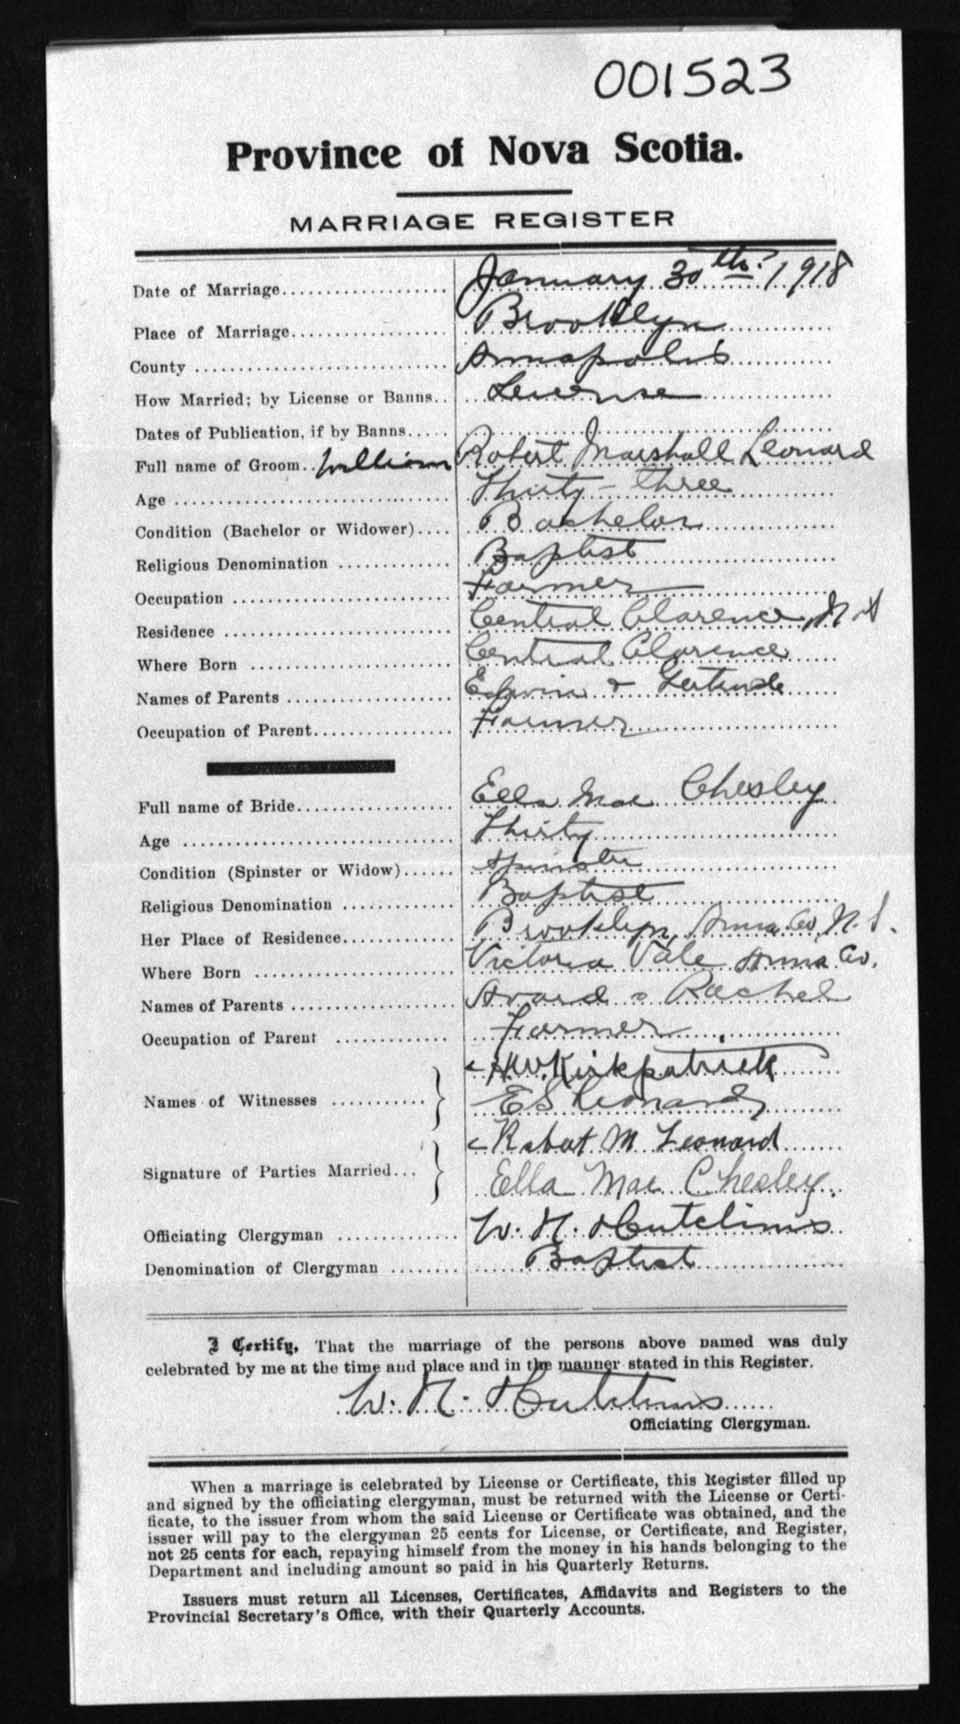 001523
Province of Nova Scotia.
MARRIAGE REGISTER
Date of Marriage January 30th. 1918
Place of Marriage Brooklyn
County Annapolis
How Married; by License or Banns License
Dates of Publication, if by Banns
Full name of Groom William Robert Marshall Leonard
Age Thirty-three
Condition (Bachelor or Widower) Bachelor
Religious Denomination Baptist
Occupation Farmer
Residence Central Clarence, N.S
Where Born Central Clarence
Names of Parents Edwin & Gertrude
Occupation of Parent Farmer
Full name of Bride Ella Mae Chesley
Age Thirty
Condition (Spinster or Widow) Spinster
Religious Denomination Baptist
Her Place of Residence Brooklyn, Anna. Co, N. S.
Where Born Victoria Vale Anna Co.
Names of Parents Avard & Rachel
Occupation of Parent Farmer
Names of Witnesses H.W. Kirkpatrick
E S Leonard
Signature of Parties Married Robert M Leonard
Ella Mae Chesley
Officiating Clergyman W. N. Hutchins
Denomination of Clergyman Baptist
I Certify, That the marriage of the persons above named was duly
celebrated by me at the time and place and in the manner stated in this Register.
W. N. Hutchins
Officiating Clergyman.
When a marriage is celebrated by License or Certificate, this Register filled up
and signed by the officiating clergyman, must be returned with the License or Certi-
ficate, to the issuer from whom the said License or Certificate was obtained, and the
issuer will pay to the clergyman 25 cents for License, or Certificate, and Register,
not 25 cents for each, repaying himself from the money in his hands belonging to the
Department and including amount so paid in his Quarterly Returns.
Issuers must return all Licenses, Certificates, Affidavits and Registers to the
Provincial Secretary's Office, with their Quarterly Accounts.